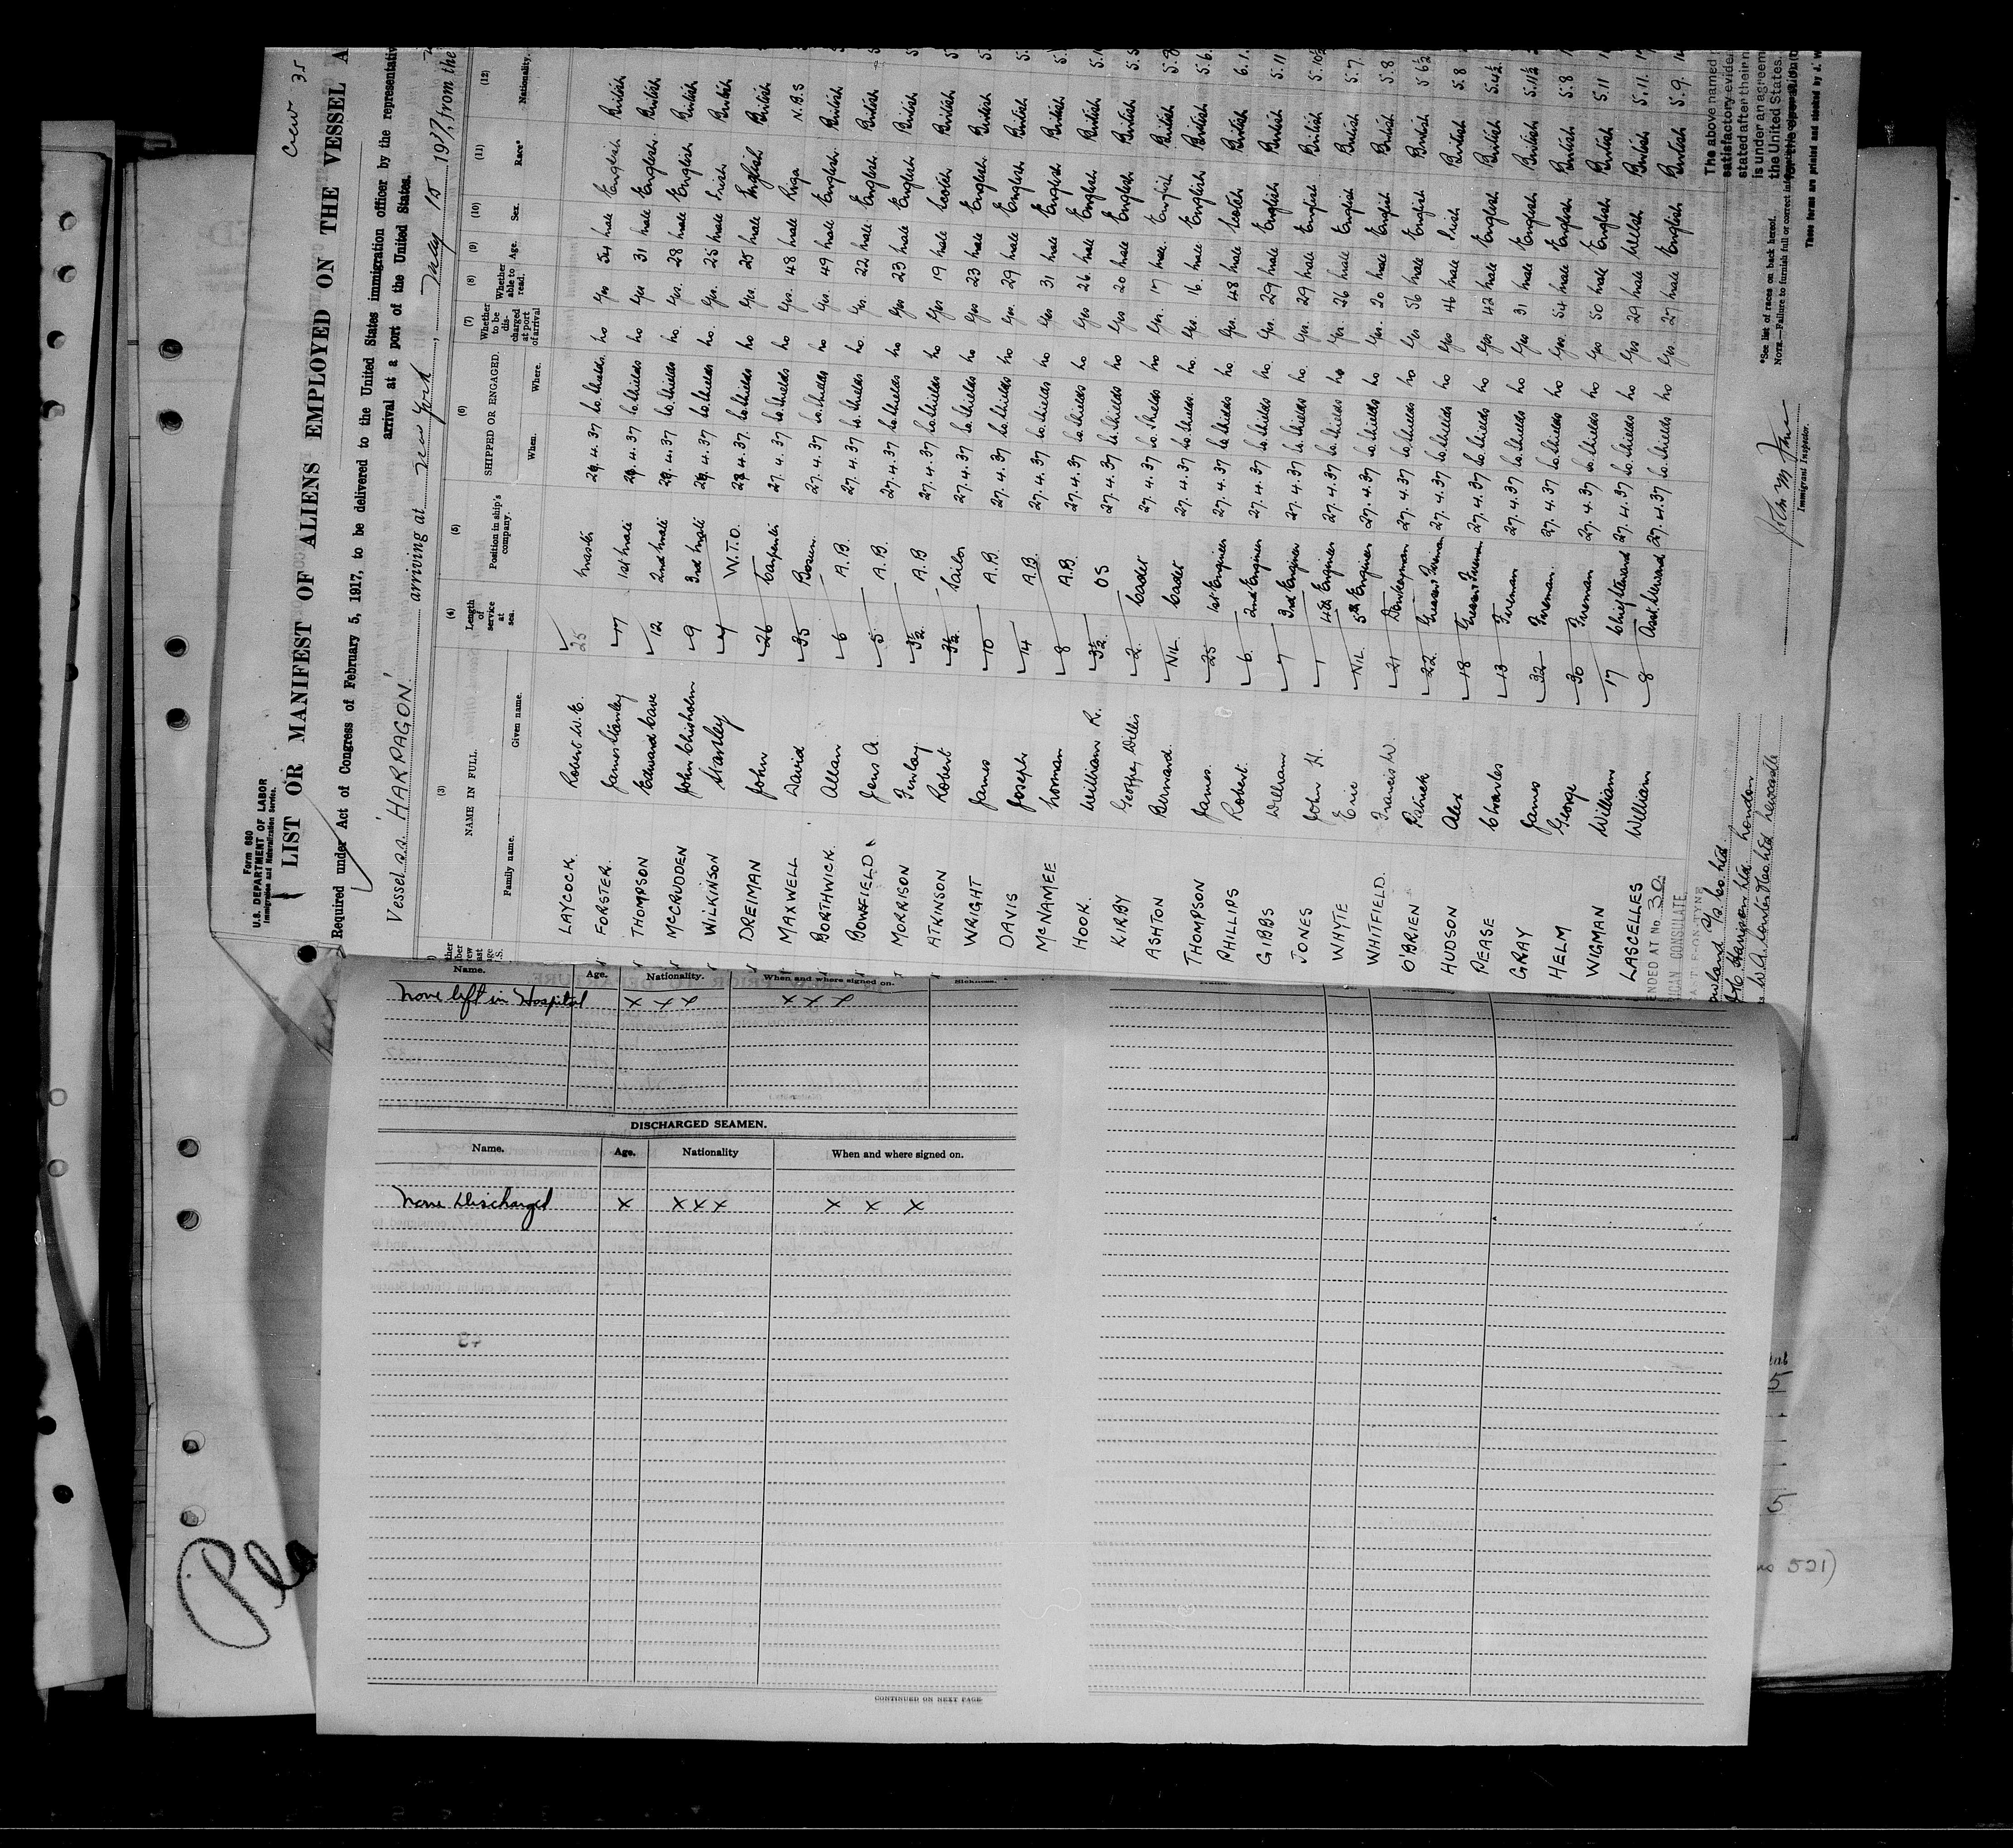 Crew 35
Form 680
U.S. DEPARTMENT OF LABOR
Immigration and Naturalization Service.
LIST OR MANIFEST OF ALIENS EMPLOYED ON THE VESSEL A
Required under Act of Congress of February 5, 1917, to be delivered to the United States immigration officer by the representativ
arrival at a port of the United States.
Vessel s.s. 'HARPAGON' arriving at New York, May 15 1937, from the
(3) (4) (5) (6) (7) (8) (9) (10) (11) (12)
NAME IN FULL. Length of service at sea. Position in ship's company. SHIPPED OR ENGAGED. Whether to be discharged at port of arrival Whether able to read. Age. Sex. Race* Nationality.
Family name. Given name. When. Where.
LAYCOCK. Robert W. E. 25 Master 4. 37 So. Shields. No Yes 54 Male English British
FORSTER. James Stanley 17 1st Mate 4. 37 So. Shields No Yes 31 Male English. British
THOMPSON Edward Cave 12 2nd Mate 4. 37 So. Shields No. Yes. 28 Male English British
McCRUDDEN John Chisholm 9 3rd Mate 4. 37 So. Shields No. Yes. 25 Male Irish British
WILKINSON Stanley 4 W.T.O. 4. 37. So. Shields No Yes. 25 Male English British
DREIMAN John 26 Carpenter 27. 4. 37 So. Shields No Yes. 48 Male Riga N.B.S
MAXWELL David 35 Bosun. 27. 4. 37 So. Shields No Yes. 49 Male English. British
BORTHWICK. Allan 6 A.B. 27. 4. 37 So. Shields No. Yes. 22 Male English. British
BOWFIELD Jens A. 5 A.B. 27. 4. 37 So. Shields No Yes 23 Male English British
MORRISON Finlay 3½ A.B 27. 4. 37 So. Shields No Yes 19 Male Scotch British
ATKINSON Robert 3½ Sailor 27. 4. 37 So. Shields No Yes 23 Male English British
WRIGHT James 10 A.B. 27. 4. 37 So. Shields No Yes. 29 Male English British
DAVIS Joseph 14 A.B. 27. 4. 37 So. Shields No Yes 31 Male English British
McNAMEE Norman 8 A.B. 27. 4. 37 So. Shields No Yes 26 Male English British
HOOK. William R. 3½ OS 27. 4. 37 So. Shields No Yes 20 Male English British
KIRBY Geoffrey Willis 2 Cadet 27. 4. 37 So. Shields No Yes. 17 Male. English British
ASHTON Bernard. NIL Cadet 27. 4. 37 So. Shields. No. Yes. 16 Male. English British
THOMPSON James. 25 1st Engineer 27. 4. 37 So. Shields No. Yes. 48 Male Scotch British
PHILLIPS Robert. 6. 2nd Engineer 27. 4. 37 So. Shields No. Yes. 29 Male English British
GIBBS William 7 3rd Engineer 27. 4. 37 So. Shields No. Yes. 29 Male English British
JONES John H. 1 4th Engineer 27. 4. 37 So. Shields No Yes. 26 Male English British
WHYTE Eric NIL. 5th Engineer 27. 4. 37 So. Shields No Yes. 20 Male English British
WHITFIELD. Francis W. 21 Donkeyman 27. 4. 37 So. Shields No Yes 56 Male English British
O'BRIEN Patrick 22. Greaser Fireman 27. 4. 37 So. Shields No Yes 46 Male Irish British
HUDSON Alex 18 Greaser Fireman 27. 4. 37 So. Shields No Yes 42 Male English British
PEASE Charles 13 Fireman 27. 4. 37 So. Shields No Yes 31 Male English British
GRAY James 32 Fireman. 27. 4. 37 So. Shields No Yes. 54 Male English British
HELM George 30 Fireman 27. 4. 37 So. Shields No Yes 50 Male English British
WIGMAN William 17 Chief Steward 27. 4. 37 So. Shields No Yes 29 Male Welsh British
LASCELLES William 8 Asst. Steward 27. 4. 37 So. Shields No Yes. 27 Male English British
ENDED AT No 30.
RICAN CONSULATE.
The above named
satisfactory eviden
stated after their n
is under an agreem
the United States.
*See list of races on back hereof.
NOTE.—Failure to furnish full or correct
These forms are printed and stocked by J. W
Immigrant Inspector.
Name. Age. Nationality. When and where signed on. Sickness.
None left in Hospital X X X X X X
DISCHARGED SEAMEN.
Name. Age. Nationality When and where signed on.
None Discharged X X X X X X X
CONTINUED ON NEXT PAGE
Pla
5
5
521)